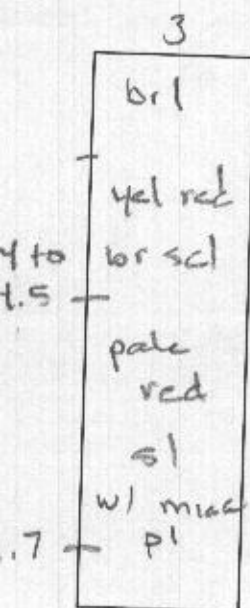 3
br l
yel red
4 to br scl
4.5
pale
red
sl
w/ mica
.7 pl